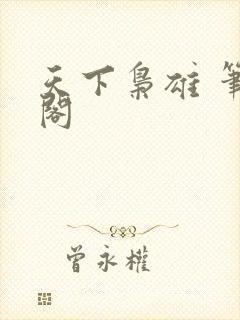 天下梟雄 筆
閣
曾永權